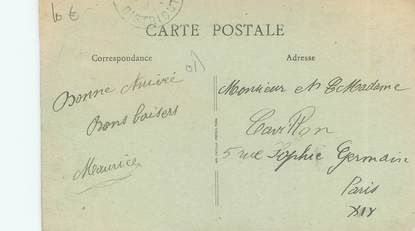 10 €
CARTE POSTALE
Correspondance
Adresse
Bonne Arrivé
Bons baisers
Maurice
Monsieur et Madame
5 rue Sophie Germain
Paris
XIV